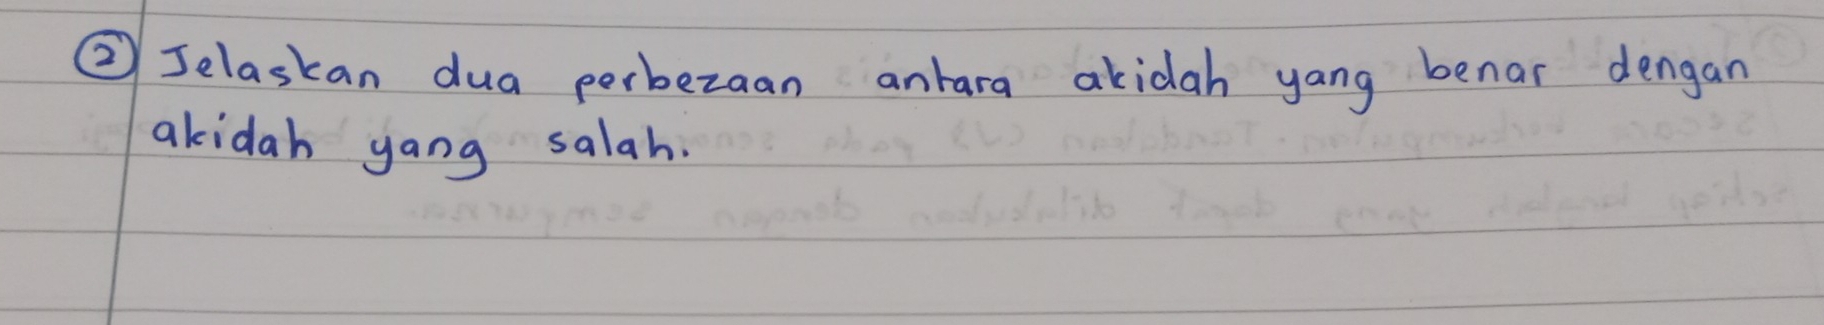 ② Jelaskan dua perbezaan antara akidah yang benar dengan
akidah yang salah.